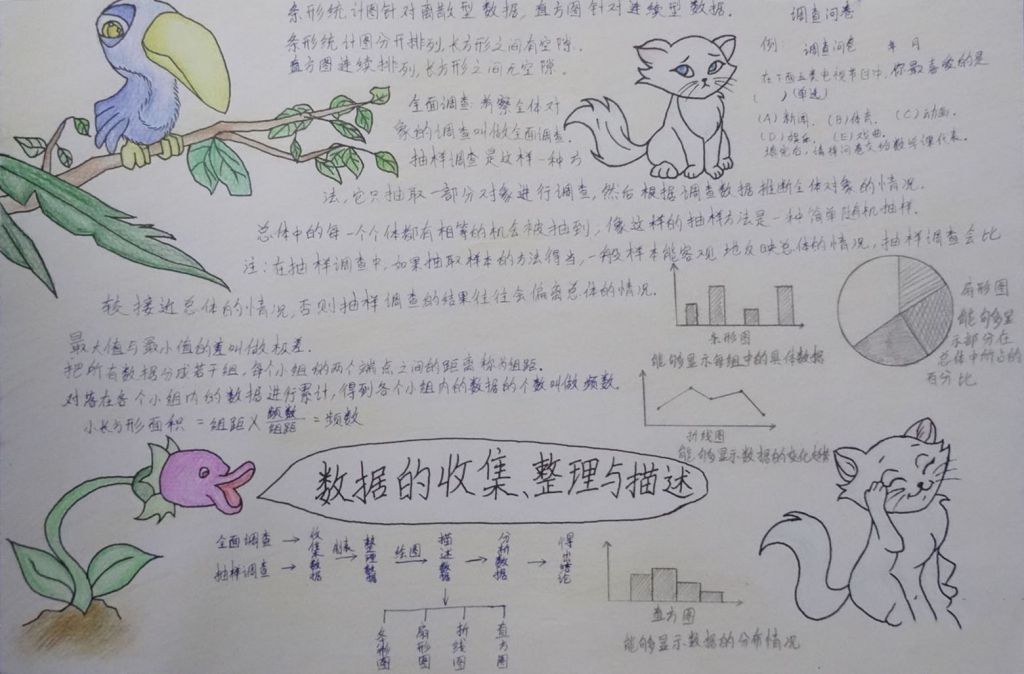 条形统计图针对离散型数据,直方图针对连续型数据.
条形统计图分开排列,长方形之间有空隙.
直方图连续排列,长方形之间无空隙.
全面调查:考察全体对
象的调查叫做全面调查.
抽样调查是这样一种方
法,它只抽取一部分对象进行调查,然后根据调查数据推断全体对象的情况.
总体中的每一个个体都有相等的机会被抽到,像这样的抽样方法是一种简单随机抽样.
注:在抽样调查中,如果抽取样本的方法得当,一般样本能客观地反映总体的情况,抽样调查会比
较接近总体的情况,否则抽样调查的结果往往会偏离总体的情况.
调查问卷
例: 调查问卷 年 月
在下面五类电视节目中,你最喜爱的是
( )(单选)
(A)新闻. (B)体育. (C)动画.
(D)娱乐. (E)戏曲.
填完后,请将问卷交给数学课代表.
最大值与最小值的差叫做极差.
把所有数据分成若干组,每个小组的两个端点之间的距离称为组距.
对落在各个小组内的数据进行累计,得到各个小组内的数据的个数叫做频数.
小长方形面积 = 组距 × 频数/组距 = 频数
条形图
能够显示每组中的具体数据
扇形图
能够显
示部分在
总体中所占的
百分比
折线图
能够显示数据的变化趋势
数据的收集、整理与描述
全面调查
抽样调查
收集数据
制表
整理数据
绘图
描述数据
分析数据
得出结论
条形图
扇形图
折线图
直方图
直方图
能够显示数据的分布情况